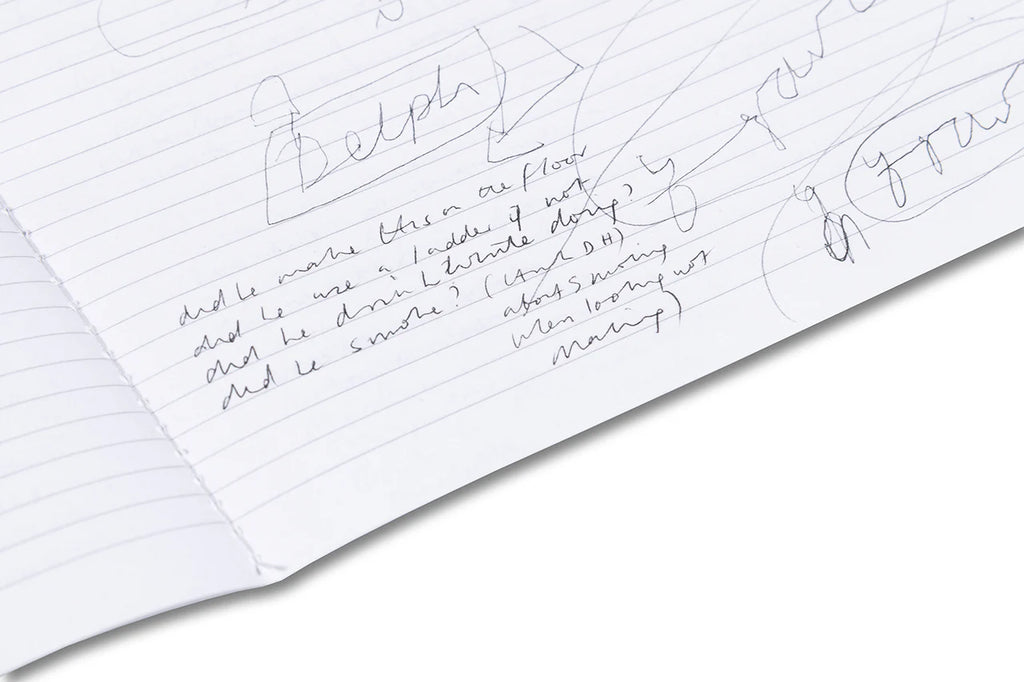 Delphi
y
y
did he make this on the floor
did he use a ladder if not
did he drink while doing?
did he smoke? (think DH)
about smoking
when looking not
making)